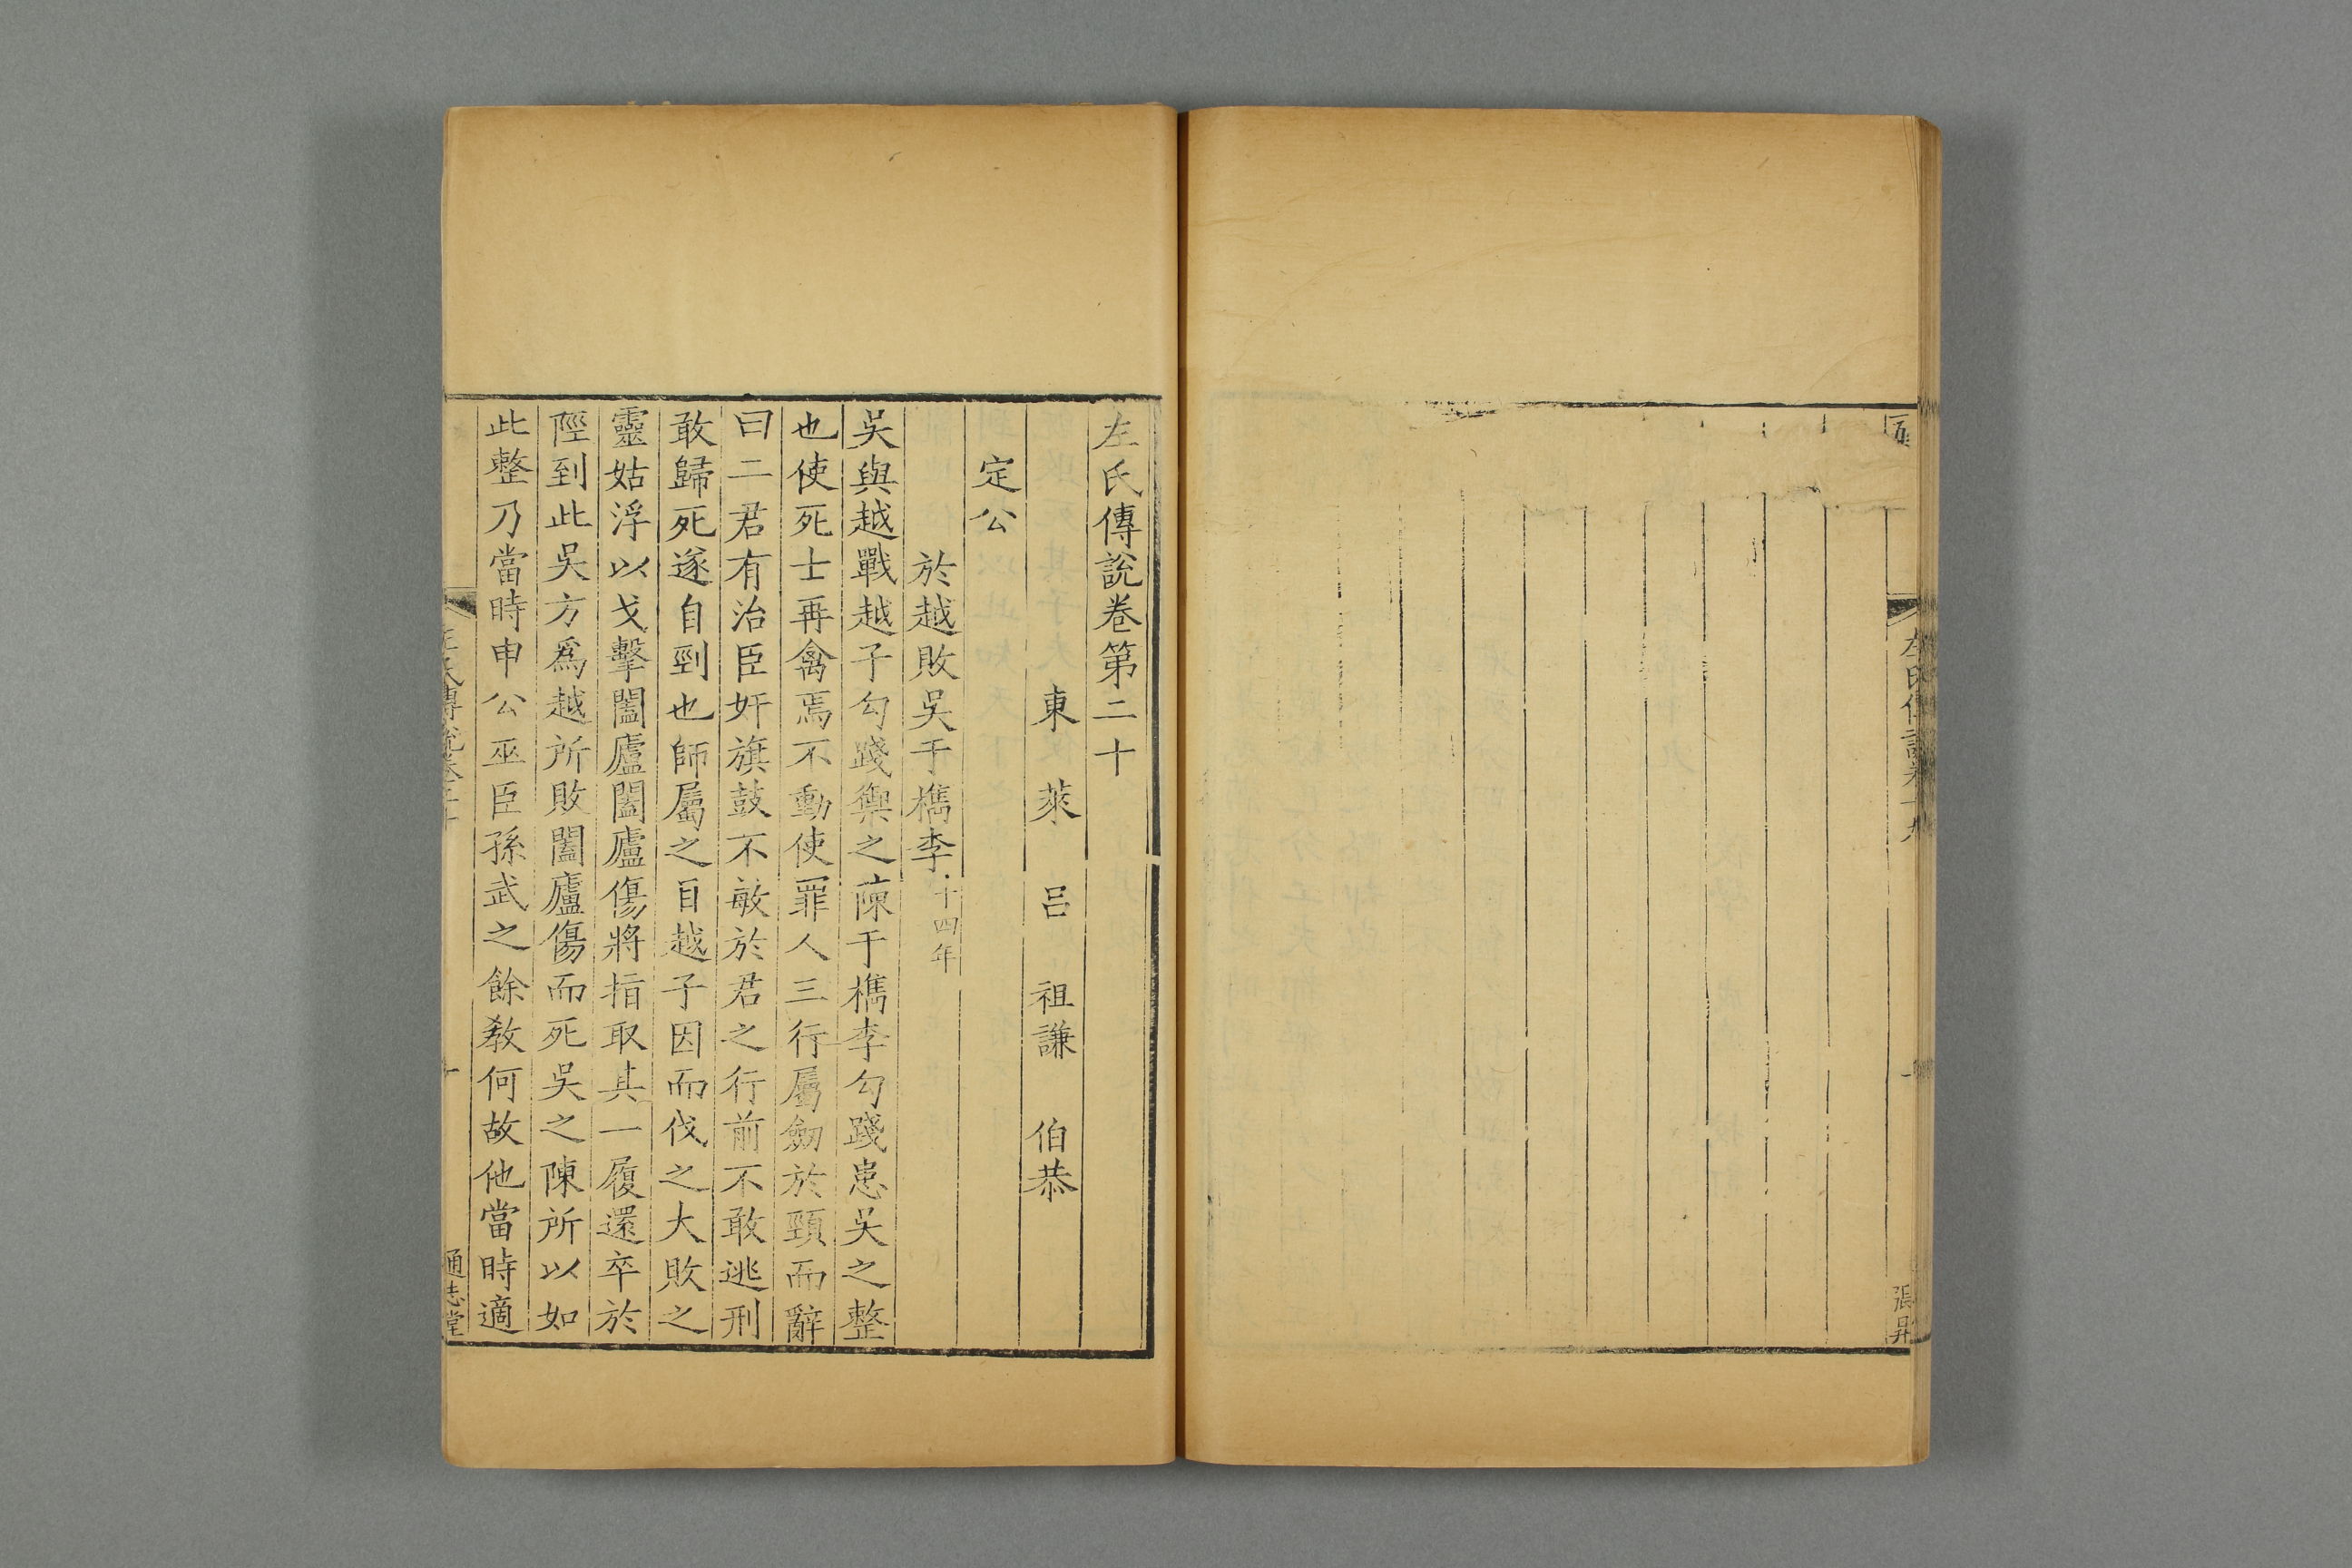 左氏傳說卷十九
張昇
左氏傳說卷第二十
東萊呂祖謙伯恭
定公
於越敗吳于檇李十四年
吳與越戰越子勾踐禦之陳于檇李勾踐患吳之整
也使死士再禽焉不動使罪人三行屬劔於頸而辭
曰二君有治臣奸旗鼓不敏於君之行前不敢逃刑
敢歸死遂自剄也師屬之目越子因而伐之大敗之
靈姑浮以戈擊闔廬闔廬傷將指取其一履還卒於
陘到此吳方爲越所敗闔廬傷而死吳之陳所以如
此整乃當時申公巫臣孫武之餘敎何故他當時適
左氏傳說卷二十
通志堂